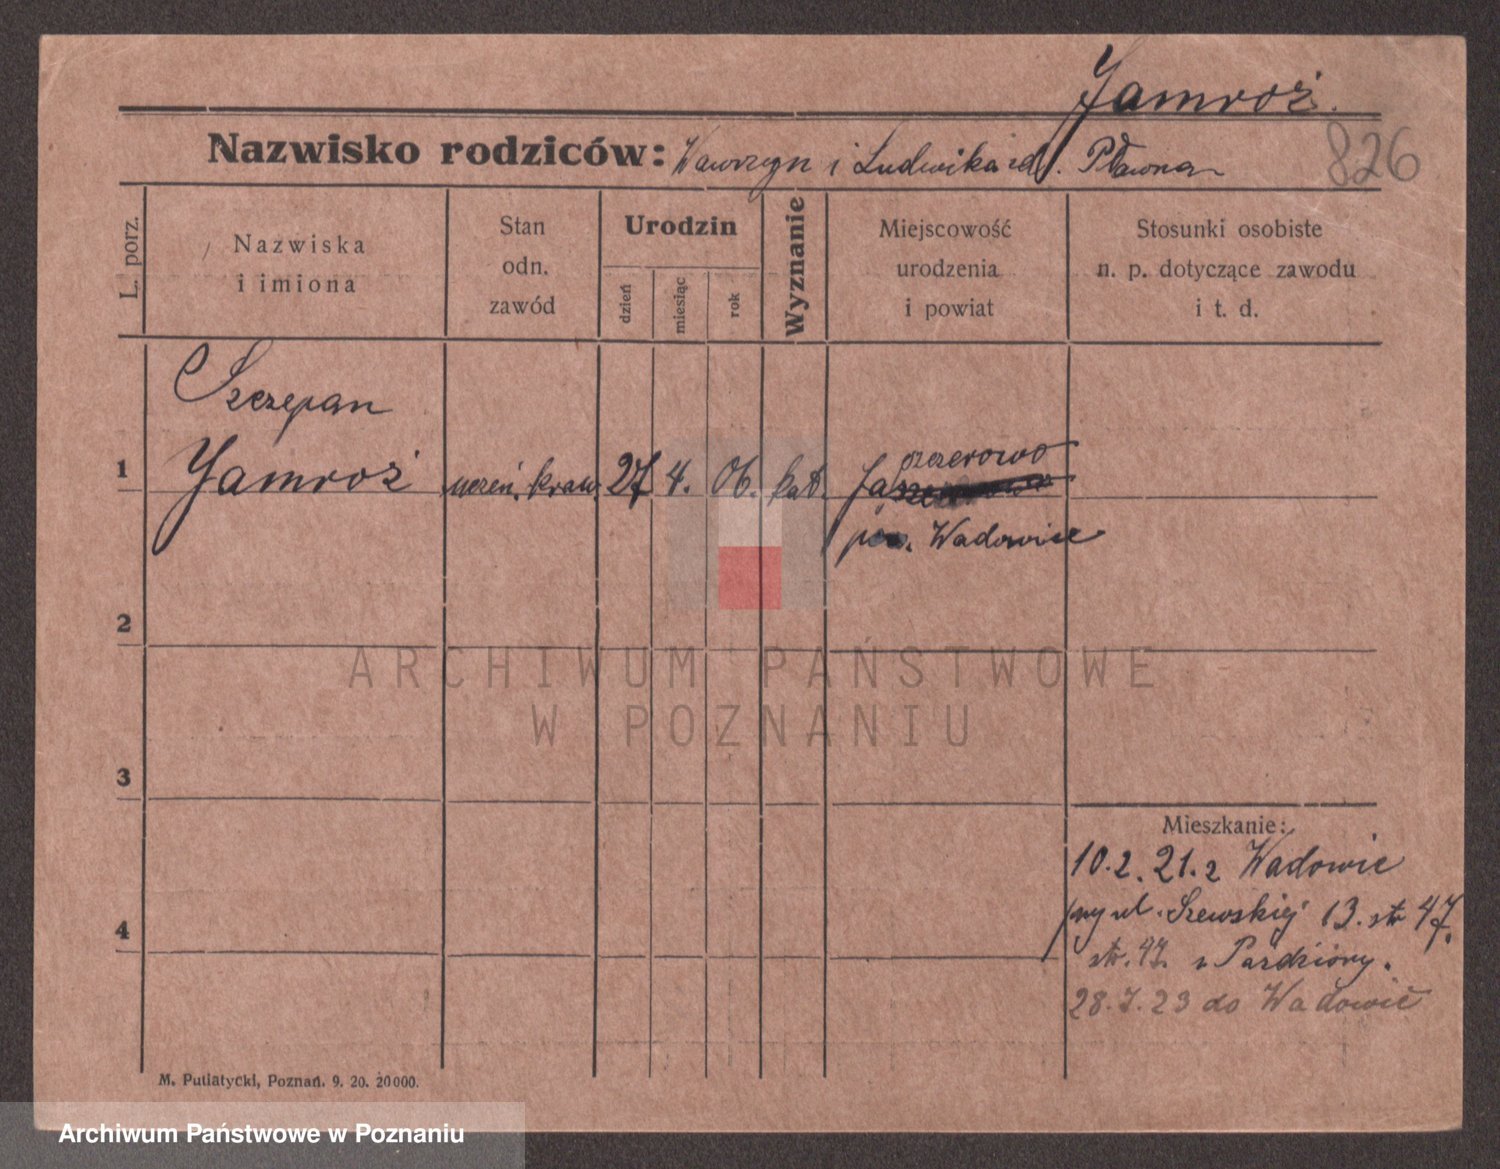 Jamroż.
826
Nazwisko rodziców: Wawrzyn i Ludwika zd. Pławna
L. porz.
Nazwiska
i imiona
Stan
odn.
zawód
Urodzin
dzień
miesiąc
rok
Wyznanie
Miejscowość
urodzenia
i powiat
Stosunki osobiste
n. p. dotyczące zawodu
i t. d.
Szczepan
1 Jamroż uczeń. kraw 27 4. 06. kat.
pow. Wadowice
2
ARCHIWUM PAŃSTWOWE
W POZNANIU
3
Mieszkanie:
10.2. 21. z Wadowic
przy ul. Szewskiej 13. str 47.
4
str. 47.
28.7.23 do Wadowic
M. Putiatycki, Poznań. 9. 20. 20000.
Archiwum Państwowe w Poznaniu